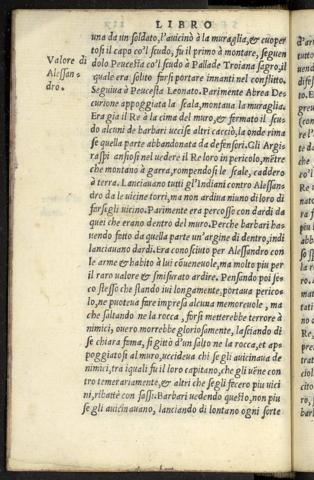 LIBRO
una da un soldato, l'auicinò à la muraglia, & cuoper
tosi il capo co'l scudo, fu il primo à montare, seguen
Valore di
Alessan-
dro.
dolo Peucestia co'l scudo à Pallade Troiana sagro, il
quale era solito farsi portare innanti nel conflitto.
Seguiua à Peucesta Leonato. Parimente Abrea De-
curione appoggiata la scala, montaua la muraglia.
Era già il Re à la cima del muro, & fermato il scudo
alcuni de barbari uccise altri cacciò, la onde rima
se quella parte abbandonata da defensori. Gli Argi
raspi ansiosi nel uedere il Re loro in pericolo, mẽtre
che montano à garra, rompendosi le scale, caddero
à terra. Lanciauano tutti gl'Indiani contro Alessan
dro da le uicine torri, ma non ardiua niuno di loro di
farsegli uicino. Parimente era percosso con dardi da
quei che erano dentro del muro. Perche barbari ha-
nendo fatto da quella parte un'argine di dentro, indi
lanciauano dardi. Era conosciuto per Alessandro con
le arme & habito à lui cõueneuole, ma molto piu per
il raro valore & smisurato ardire. Pensando poi se-
co stesso che stando iui longamente, portaua perico-
lo, ne poteua fare impresa alcuna memoreuole, ma
che saltando ne la rocca, forsi metterebbe terrore à
nimici, ouero morrebbe gloriosamente, lasciando di
se chiara fama, si gittò d'un salto ne la rocca, et ap-
poggiatosi al muro, uccideua chi se gli auicinaua de
nimici, tra i quali fu il loro capitano, che gli uẽne con
tro temerariamente, & altri che segli fecero piu vici
ni, ribattè con sassi. Barbari uedendo questo, non piu
se gli auicinauano, lanciando di lontano ogni sorte